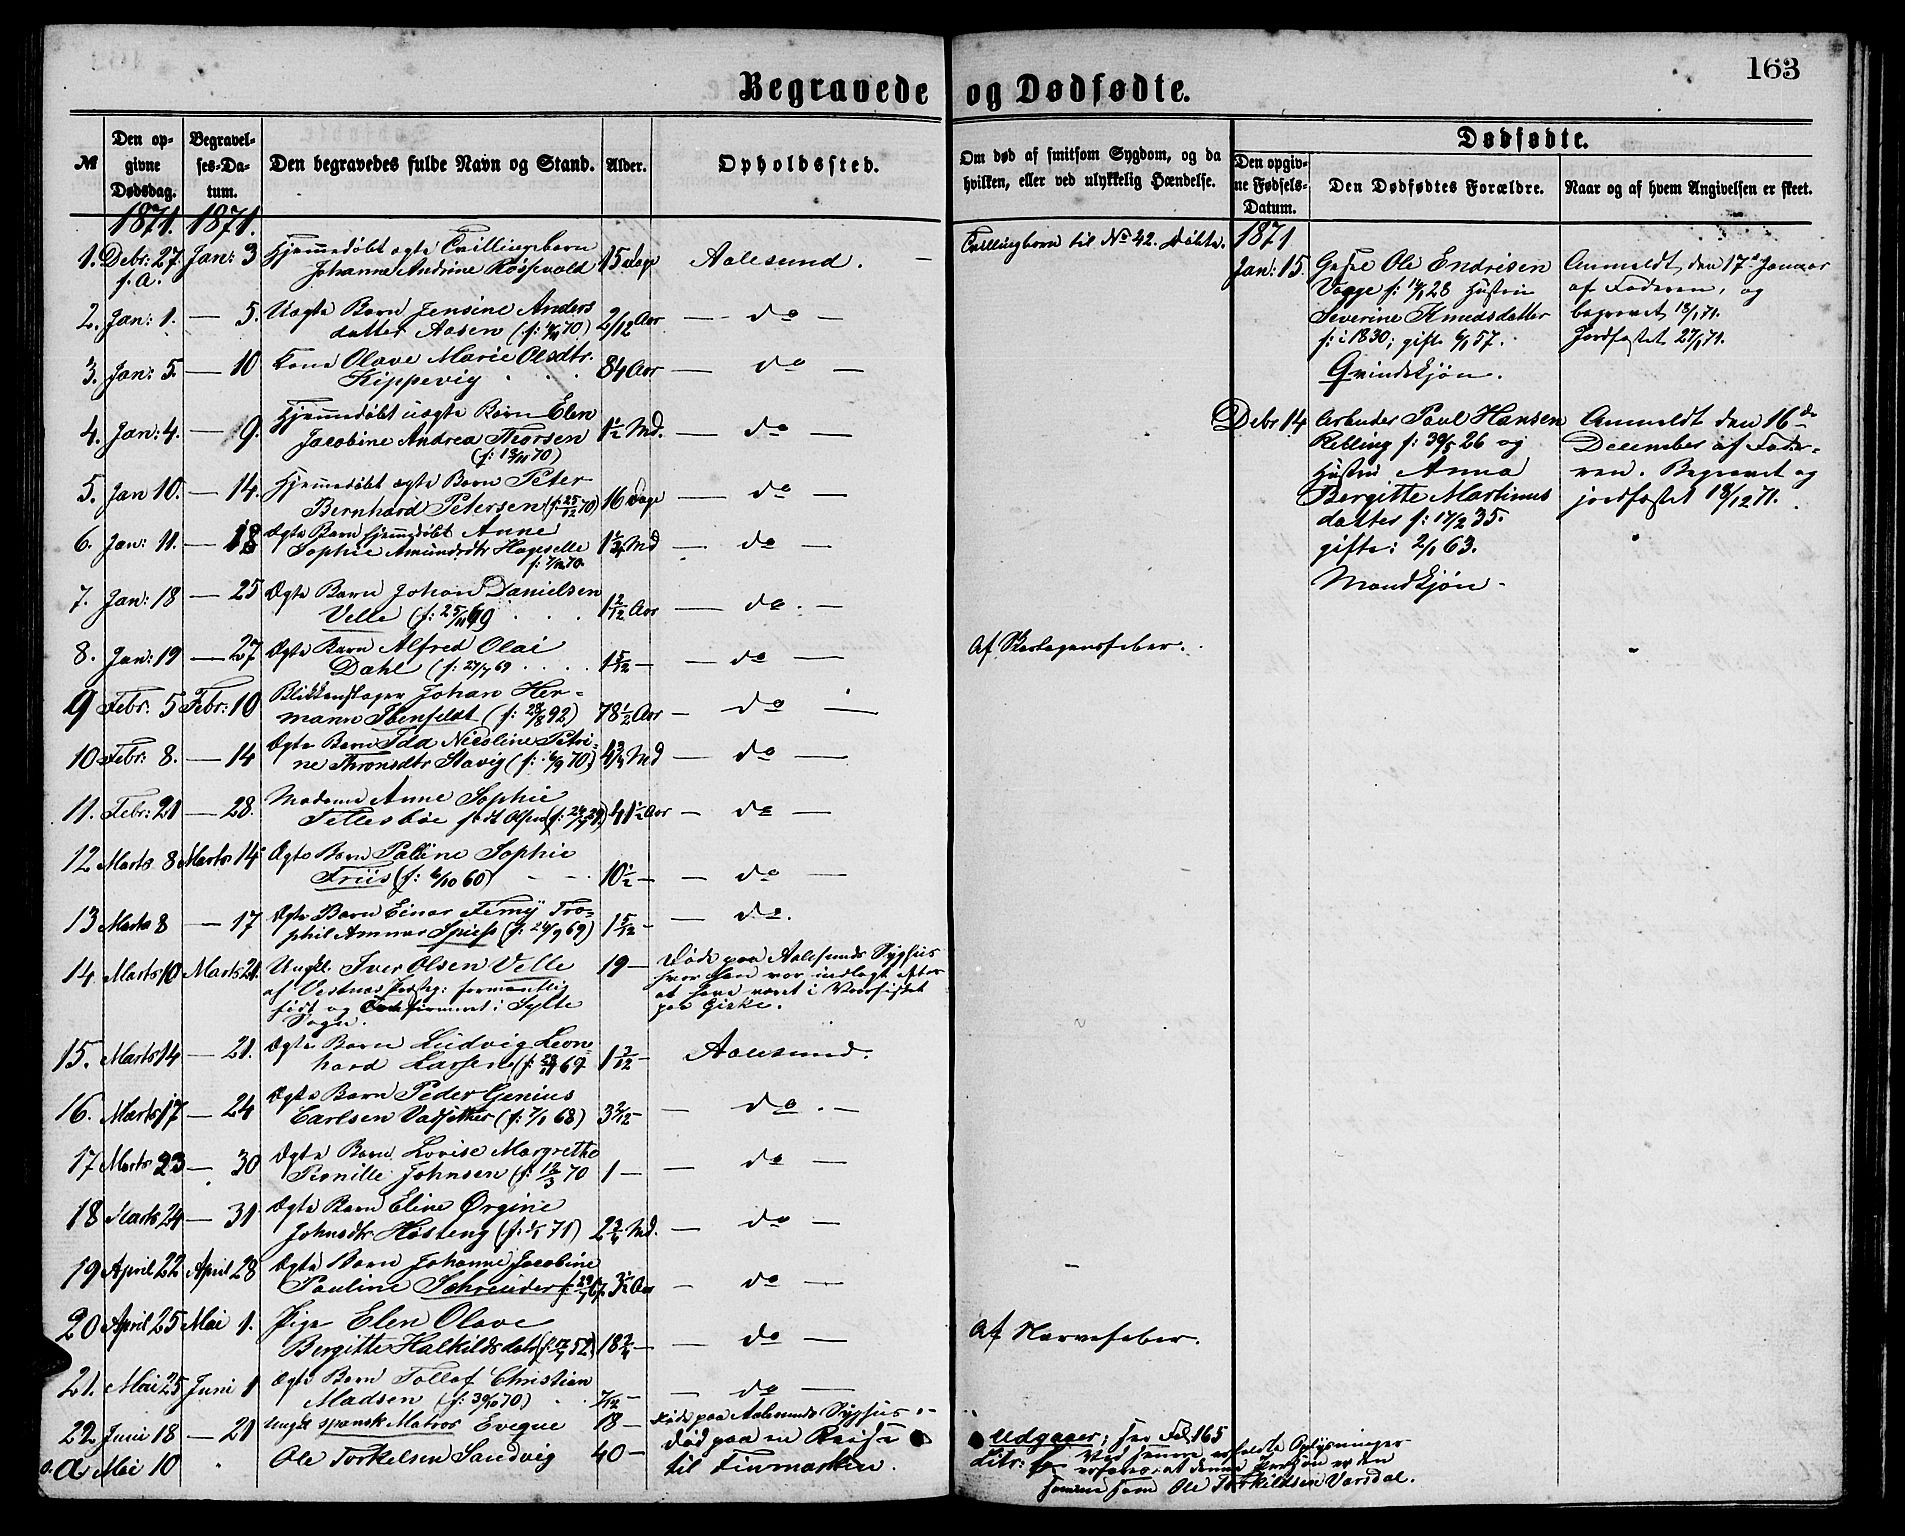 163
Begravede og Dødfødte.
№
Den opgivne Dødsdag.
Begravelses-Datum.
Den begravedes fulde Navn og Stand.
Alder.
Opholdssted.
Om død af smitsom Sygdom, og da hvilken, eller ved ulykkelig Hændelse.
Dødfødte.
Den opgivne Fødsels-Datum.
Den Dødfødtes Forældre.
Naar og af hvem Angivelsen er skeet.
1871. 1871.
1. Debr: 27. f. a. Jan: 3 Hjemmedøbt ægte Tvillingebarn
Johanne Andrine Røssevold 15 dage Aalesund. Tvillingbarn til No 42. Døbte.
2. Jan: 1. — 5. Uægte Barn Jensine Anders
datter Aasen 2/12 Aar — do —
3. Jan: 5. — 10 Kone Olave Marie Olsdtr.
Kippevig 84 Aar — do —
4. Jan: 4. — 9. Hjemmedøbt uægte Barn Elen
Jacobine Andrea Thorsen 1½ Md. — do —
5. Jan 10. — 14. Hjemmedøbt ægte Barn Peter
Bernhard Petersen (f: 25/12 70) 16 Dage — do —
6. Jan: 11. — 18 Ægte Barn hjemmedøbt Anne
Sophie Amundsdtr 1¼ Md — do —
7. Jan: 18 — 25 Ægte Barn Johan Danielsen
Velle (f: 25/11 69) 1 2/12 Aar — do. —
8. Jan: 19 — 27 Ægte Barn Alfred Olai
Dahl (f: 27/7 69 1 5/12 — — do — Af Skarlagensfeber.
9 Febr: 5 Febr: 10 Blikkenslager Johan Her-
mann Ibenfeldt (f: 28/8 92) 78½ Aar — do —
10 Febr: 8. — 14 Ægte Barn Ida Nicoline Petri-
ne Thronsdtr Stavig 4¾ Md — do —
11. Febr: 21 — 28. Madame Anne Sophie
født 41½ Aar — do —
12 Marts 8 Marts 14 Ægte Barn Paline Sophie
Friis (f: 6/10 60) 10½ — — do —
13 Marts 8 — 17 Ægte Barn Einar
Spiess 1 5/12 — — do.
14. Marts 10 Marts 21. Ungkl. Iver Olsen Velle 19 — Døde paa Aalesunds Sygehus
af Vestnes Præstg: formentlig hvor han var indlagt efter
født og Confirmeret i Sylte at have været i Vaarfisket
Sogn. paa Giske.
15. Marts 14 — 21. Ægte Barn Ludvig Leon-
hard Larsen 1 3/12 — Aalesund.
16. Marts 17 — 24 Ægte Barn Peder Genius
Carlsen (f: 7/1 68) 3 2/12 — — do. —
17 Marts 23 — 30 Ægte Barn Lovise Margrethe
Pernille Johnsen (f: 12/3 70 1 — — do —
18 Marts 24 — 31 Ægte Barn Eline Ørgine
Johnsdtr 2¾ Md. — do —
19 April 22 April 28 Ægte Barn Johanne Jacobine
Pauline Schreuder 3½ Aar — do —
20 April 25 Mai 1. Pige Elen Olave
Bergitte Halkildsdatr 18¾ — — do — Af Nervefeber.
21. Mai 25 Juni 1 Ægte Barn Tollof Christian
Madsen 7/12 — — do —
22. Juni 18 — 21 Ungkl spansk Matros 18 — Døde paa Aalesunds Sygehus
a. Mai 10 Ole Torkelsen Sandvig 40 — Død paa en Reise
til Finmarken.
Udgaaer; see Fol 165
Ved senere erholdte Oplysninger
erfares at denne Person er den
samme som Ole Torkildsen Vasdal.
1871
Jan: 15. Gaste Ole Endrisen
Vaage Hustru
Severine Knudsdatter
f: i 1830; gifte 57.
Qvindekjøn.
Anmeldt den 17de Januar
af Faderen, og
begravet 18/1 71.
Jordfæstet 27/1 71.
Debr 14 Arbeider Paul Hansen
Rebling f: 30/5 26 og
Hustru Anna
Bergitte Martinus
datter f: 17/2 35.
gifte: 2/1 63.
Mandkjøn.
Anmeldt den 16de
December af Fade-
ren. Begravet og
jordfæstet 18/12 71.